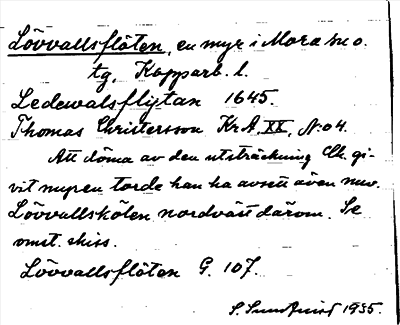 Lövvallsflöten, en myr i Mora sn o.
tg, Kopparb. l.
Ledewalsflÿtan 1645.
Thomas Christersson KrA, XX, N:o 4.
Att döma av den utsträckning Ch. gi-
vit myren torde han ha avsett även nuv.
Lövvallskölen nordväst därom. Se
omst. skiss.
Lövvallsflöten G. 107.
S. Sundqvist 1935.